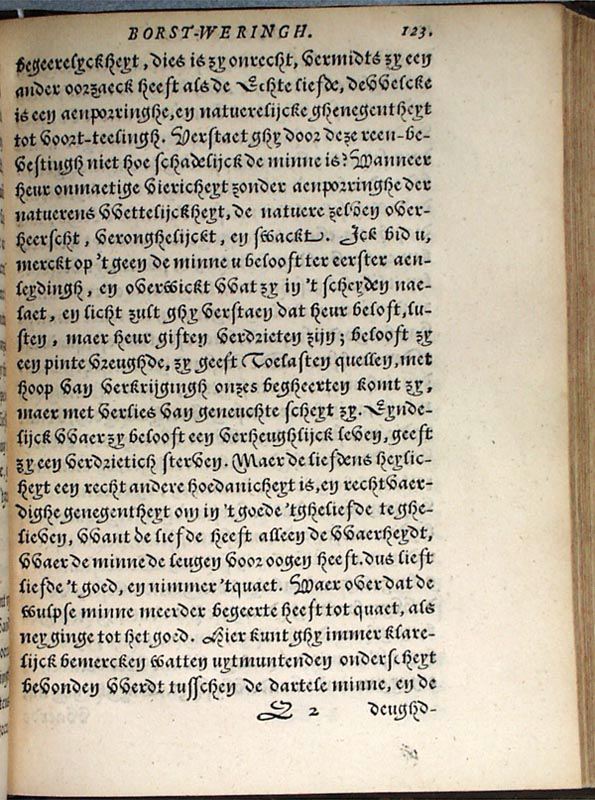 BORST-WERINGH. 123.
begeerelyckheyt, dies is zy onrecht, vermidts zy een
ander oorzaeck heeft als de Echte liefde, de VVelcke
is een aenporringhe, en natuerelijcke ghenegentheyt
tot voort-teelingh. Verstaet ghy door deze reen-be-
vestingh niet hoe schadelijck de minne is? Wanneer
heur onmaetige viericheyt zonder aenporringhe der
natuerens VVettelijckheyt, de natuere zelven over-
heerscht, veronghelijckt, en swackt. Ick bid u,
merckt op 't geen de minne u belooft ter eerster aen-
leydingh, en overwickt VVat zy in 't scheyden nae-
laet, en licht zult ghy verstaen dat heur beloft, lu-
sten, maer heur giften verdrieten zijn; belooft zy
een pinte vreughde, zy geeft Toelasten quellen, met
hoop van verkrijgingh onzes begheerten komt zy,
maer met verlies van geneuchte scheyt zy. Eynde-
lijck VVaer zy belooft een verheughlijck leven, geeft
zy een verdrietich sterven. Maer de liefdens heylic-
heyt een recht andere hoedanicheyt is, en rechtVaer-
dighe genegentheyt om in 't goede 'tgheliefde te ghe-
lieven, VVant de liefde heeft alleen de VVaerheydt,
VVaer de minne de leugen voor oogen heeft. dus lieft
liefde 't goed, en nimmer 'tquaet. Waer over dat de
wulpse minne meerder begeerte heeft tot quaet, als
neyginge tot het goed. Hier kunt ghy immer klare-
lijck bemercken watten uytmuntenden onderscheyt
bevonden VVerdt tusschen de dartele minne, en de
2 deughd-